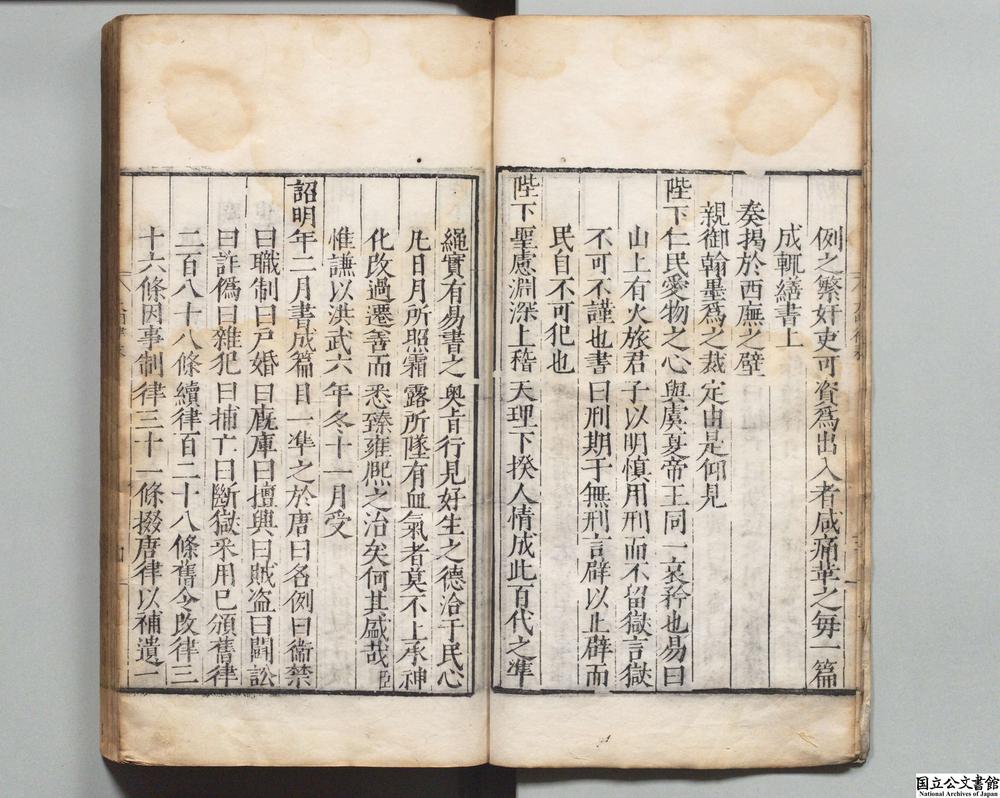 例之繁奸吏可資爲出入者咸痛革之每一篇
成輒繕書上
奏揭於西廡之壁
親御翰墨爲之裁定由是仰見
陛下仁民愛物之心與虞夏帝王同一哀矜也易曰
山上有火旅君子以明慎用刑而不留獄言獄
不可不謹也書曰刑期于無刑言辟以止辟而
民自不可犯也
陛下聖慮淵深上稽天理下揆人情成此百代之凖
繩實有易書之奥肯行見好生之德洽于民心
凡日月所照霜露所墜有血氣者莫不上承神
化改過遷善而悉臻雍熈之治矣何其盛哉臣
惟謙以洪武六年冬十一月受
詔明年二月書成篇目一凖之於唐曰名例曰衞禁
曰職制曰戸婚曰廐庫曰擅興曰賊盗曰鬪訟
曰詐僞曰雜犯曰捕亡曰斷獄采用巳頒舊律
二百八十八條續律百二十八條舊令改律三
十六條因事制律三十一條掇唐律以補遺一
国立公文書館
National Archives of Japan